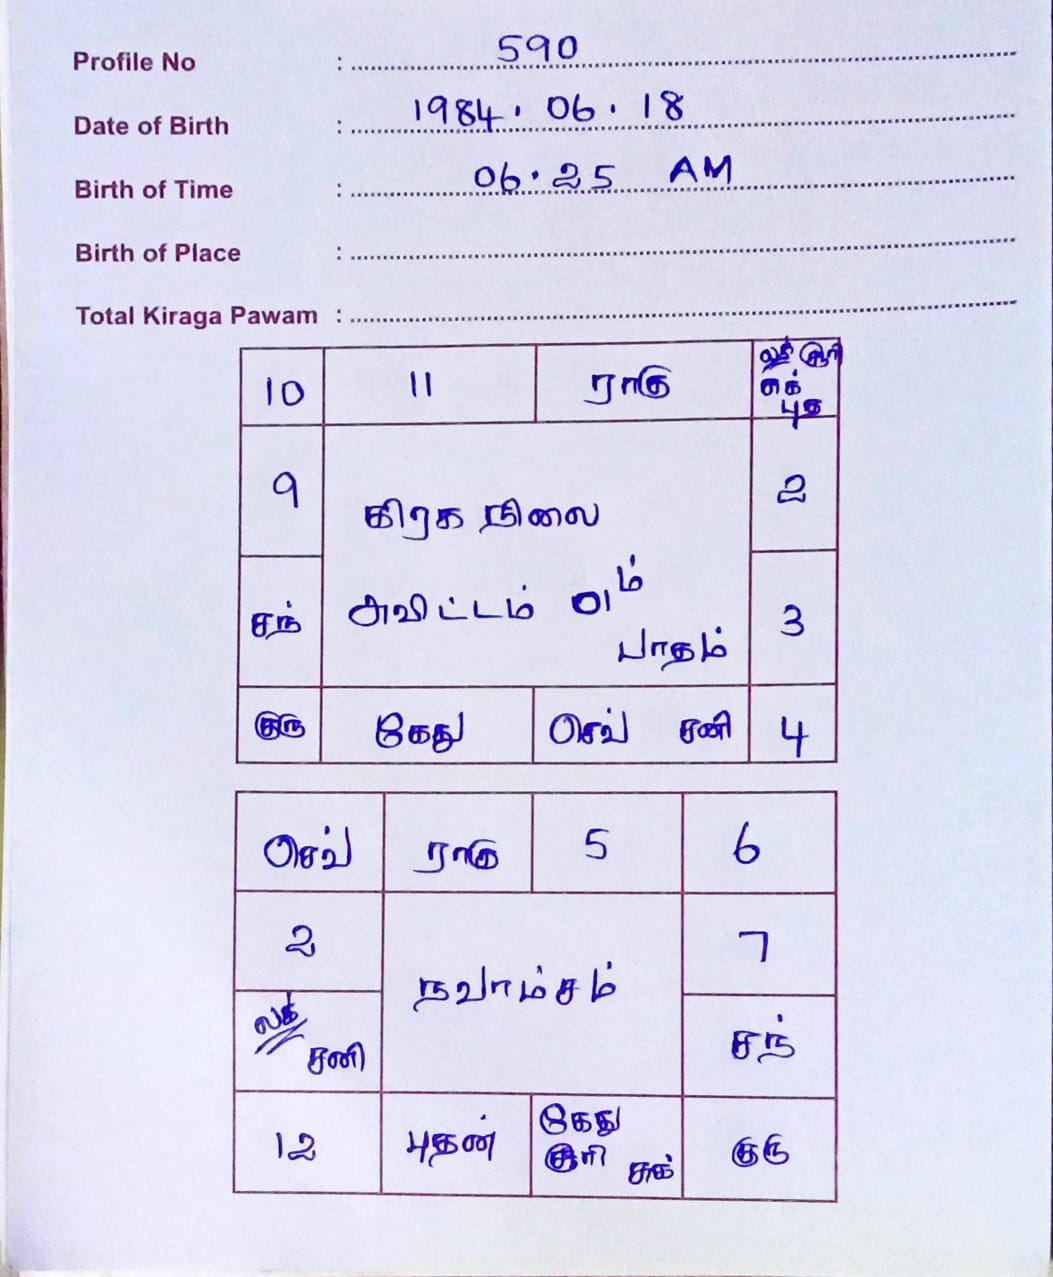 Profile No : 590
Date of Birth : 1984.06.18
Birth of Time : 06.25 AM
Birth of Place :
Total Kiraga Pawam :
10 11 ராகு லக் சூரி
சுக்
புத
9 2
கிரக நிலை
அவிட்டம் 01ம்
பாதம்
சந் 3
குரு கேது செவ் சனி 4
செவ் ராகு 5 6
2 7
நவாம்சம்
லக்
சனி
சந்
12 புதன் கேது
சூரி சுக்
குரு